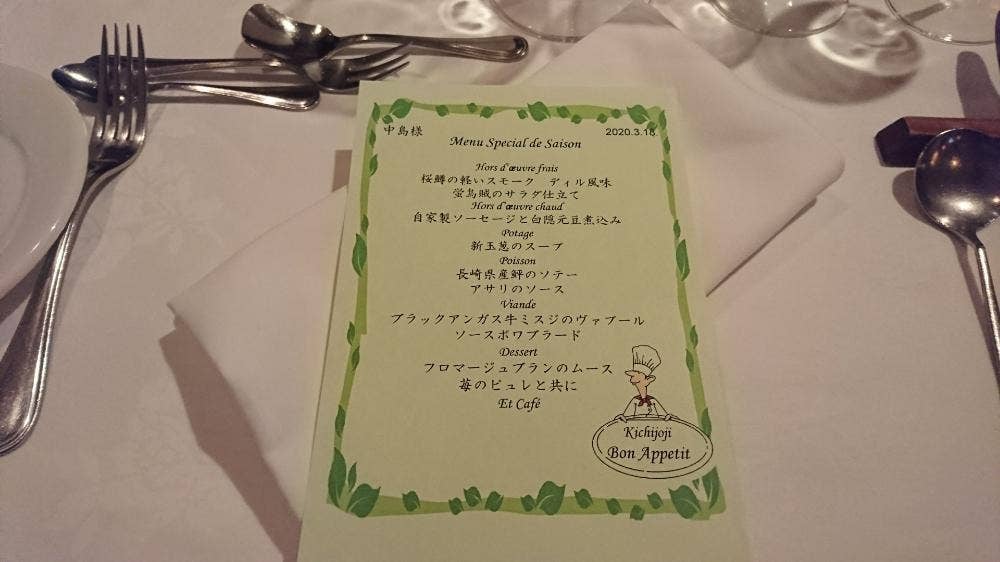 中島様
2020.3.18
Menu Special de Saison
Hors d'œuvre frais
桜鱒の軽いスモーク ディル風味
蛍烏賊のサラダ仕立て
Hors d'œuvre chaud
自家製ソーセージと白隠元豆煮込み
Potage
新玉葱のスープ
Poisson
長崎県産鮃のソテー
アサリのソース
Viande
ブラックアンガス牛ミスジのヴァプール
ソースポワブラード
Dessert
フロマージュブランのムース
苺のピュレと共に
Et Café
Kichijoji
Bon Appetit